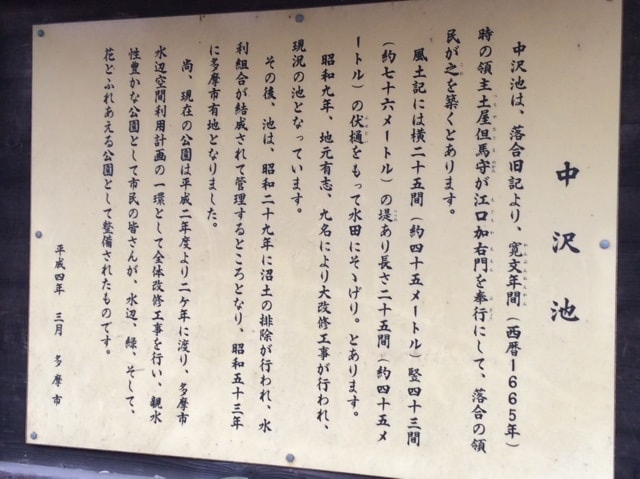 中沢池
中沢池は、落合旧記より、寛文年間（西暦1665年）
時の領主土屋但馬守が江口加右門を奉行にして、落合の領
民が之を築くとあります。
風土記には横二十五間（約四十五メートル）竪四十三間
（約七十六メートル）の堤あり長さ二十五間（約四十五メ
ートル）の伏樋をもって水田にそゝげり。とあります。
昭和九年、地元有志、九名により大改修工事が行われ、
現況の池となっています。
その後、池は、昭和二十九年に沼土の排除が行われ、水
利組合が結成されて管理するところとなり、昭和五十三年
に多摩市有地となりました。
尚、現在の公園は平成二年度より二ヶ年に渡り、多摩市
水辺空間利用計画の一環として全体改修工事を行い、親水
性豊かな公園として市民の皆さんが、水辺、緑、そして、
花とふれあえる公園として整備されたものです。
平成四年 三月 多摩市